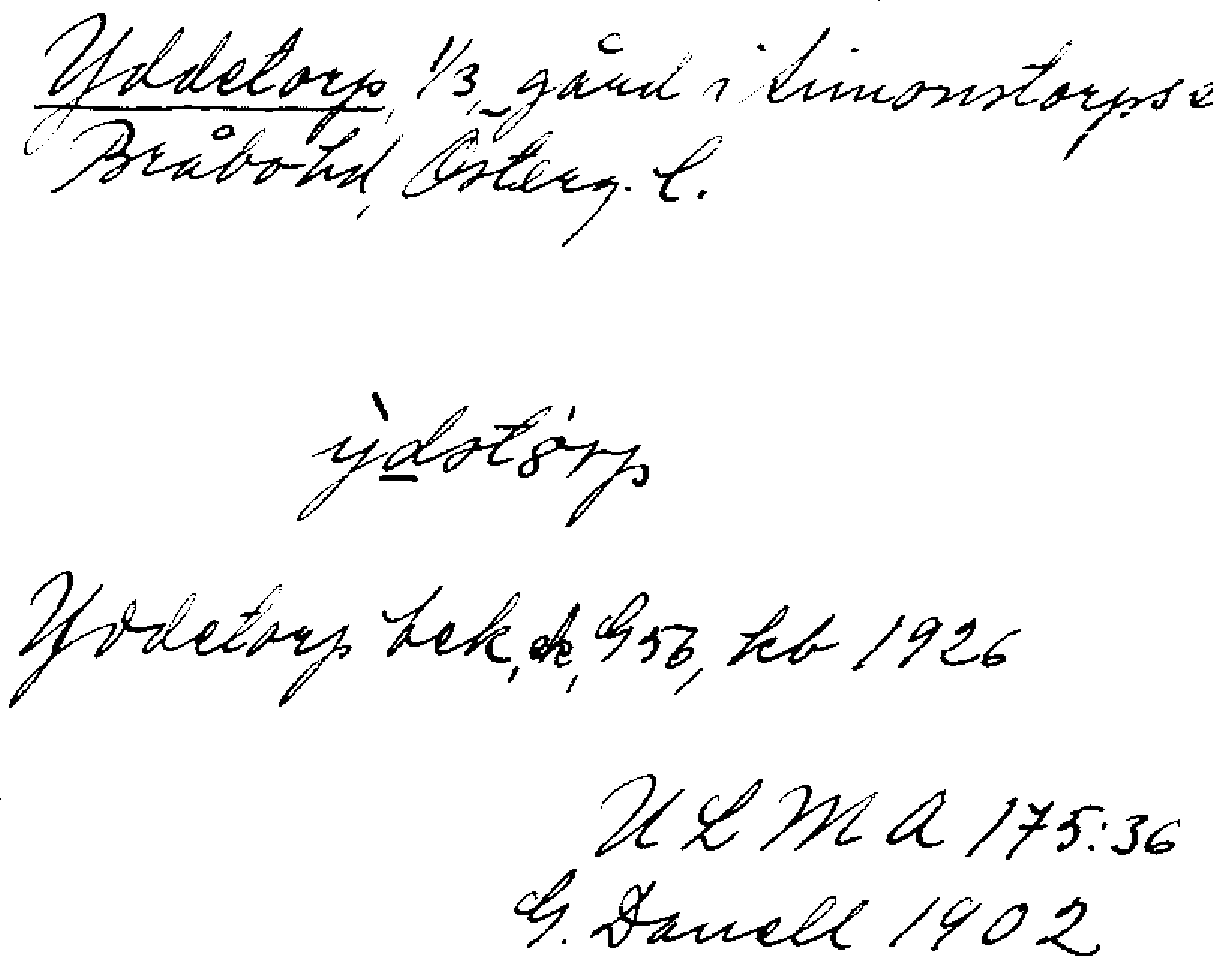 Yddetorp, 1/3, gård i Simonstorps s
Bråbo hd, Österg. l.
ỳdstörp
Yddetorp bek, ek, G56, kb 1926
ULMA 175:36
G. Danell 1902